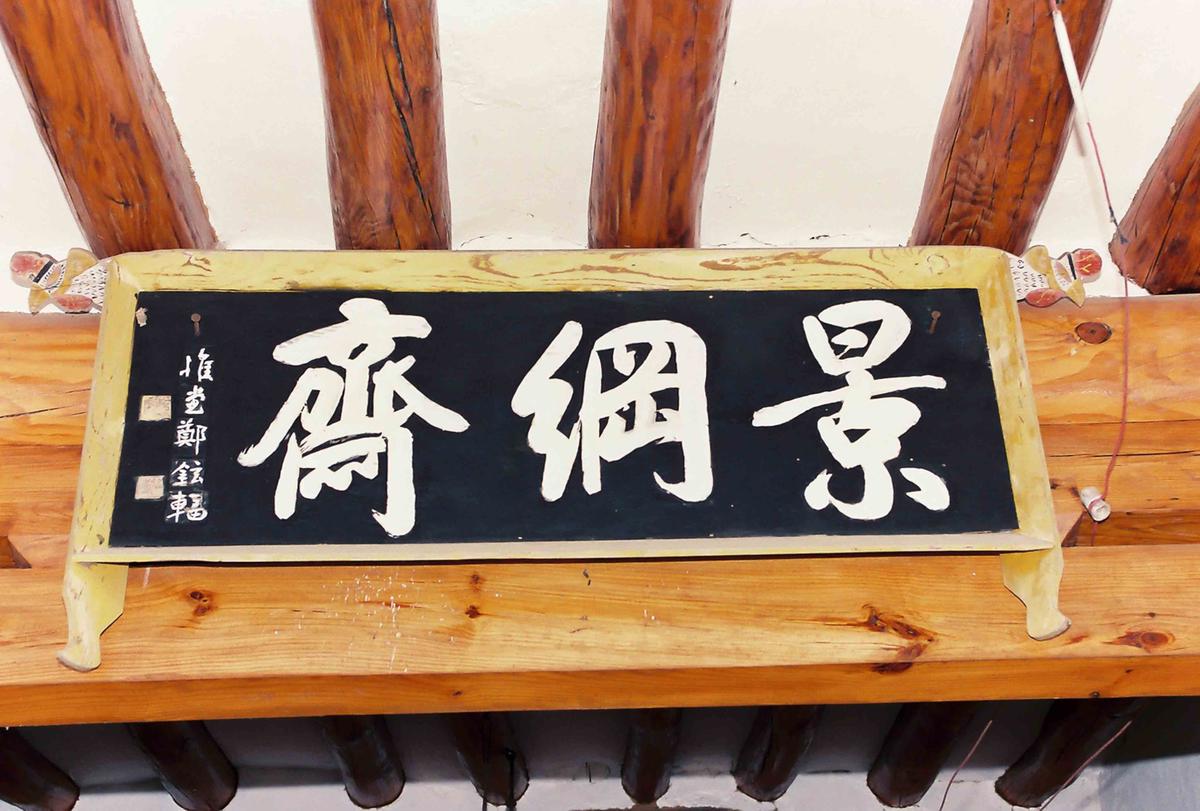 景綱齋
惟堂鄭鉉輻